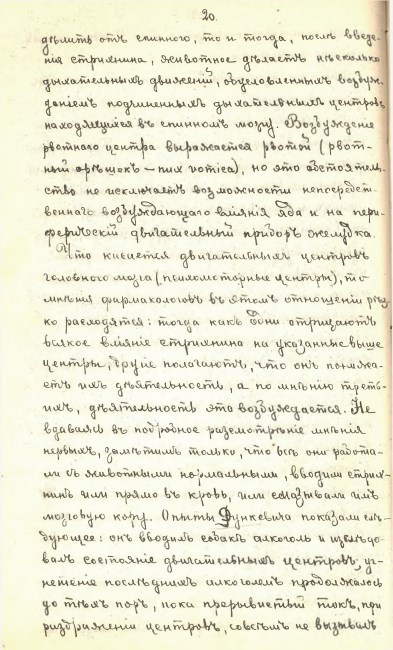 20.
дѣлить отъ спинного, то и тогда, послѣ введе-
нія стрихнина, животное дѣлаетъ нѣсколько
дыхательныхъ движеній, обусловленныхъ возбуж-
деніемъ подчиненныхъ дыхательныхъ центровъ
находящихся въ спинномъ мозгу. Возбужденіе
рвотнаго центра выражается рвотой (рвот-
ный орѣшокъ – nux vomica), но это обстоятель-
ство не исключаетъ возможности непосредст-
веннаго возбуждающаго вліянія яда и на пери-
ферическій двигательный приборъ желудка.
Что касается двигательныхъ центровъ
головного мозга (психомоторные центры), то
мнѣнія фармакологовъ въ этомъ отношеніи рѣз-
ко расходятся: тогда какъ одни отрицаютъ
всякое вліяніе стрихнина на указанные выше
центры, другіе полагаютъ, что онъ понижа-
етъ ихъ дѣятельность, а по мнѣнію треть-
ихъ, дѣятельность эта возбуждается. Не
вдаваясь въ подробное разсмотрѣніе мнѣнія
первыхъ, замѣтимъ только, что всѣ они работа-
ли съ животными нормальными, вводили стрих-
нинъ или прямо въ кровь, или смазывали имъ
мозговую кору. Опыты Дункевича показали слѣ-
дующее: онъ вводилъ собакѣ алкоголь и изслѣдо-
валъ состояніе двигательныхъ центровъ; уг-
нетеніе послѣднихъ алкоголемъ продолжалось
до тѣхъ поръ, пока прерывистый токъ, при
раздраженіи центровъ, совсѣмъ не вызывалъ